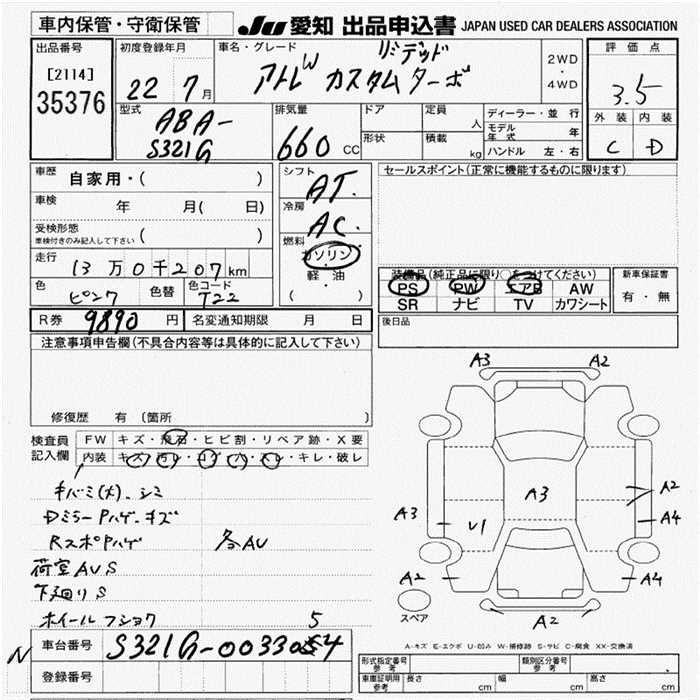 車内保管・守衛保管
JU 愛知 出品申込書 JAPAN USED CAR DEALERS ASSOCIATION
出品番号
[2114]
35376
初度登録年月
22 7月
車名・グレード
リミテッド
アトレW カスタムターボ
2WD
・
4WD
評価点
3.5
外装 内装
C D
型式
ABA-
S321G
排気量
660 CC
ドア
形状
定員
人
積載
kg
ディーラー・並行
モデル年式 年
ハンドル 左・右
車歴
自家用・( )
車検
年 月( 日)
受検形態
車検付きのみ記入して下さい ( )
走行
13万0千207km
色
ピンク
色替
色コード
T22
シフト
AT.
冷房
AC
燃料
ガソリン
軽・油
( )
セールスポイント(正常に機能するものに限ります)
装備品(純正品に限り○をつけてください)
PS PW エアB AW
SR ナビ TV カワシート
新車保証書
有・無
後日品
R券 9890 円
名変通知期限 月 日
注意事項申告欄(不具合内容等は具体的に記入して下さい)
修復歴 有(箇所
検査員
記入欄
FW キズ・飛石・ヒビ割・リペア跡・X要
内装 キズ・汚レ・コゲ・穴・スレ・キレ・破レ
キバミ(大)、シミ
Dミラー Pハゲ、キズ
RスポPハゲ 各AU
荷室AUS
下廻りS
ホイール フショク 5
A3 A2
A3
A3
V1
A2
A4
A2 A4
A2
スペア
A-キズ E-エクボ U-凹み W-補修跡 S-サビ C-腐食 XX-交換済
N
車台番号 S321G-0033054
登録番号
形式指定番号
参考
類別区分番号
参考
車庫証明用
参考
長さ cm
幅 cm
高さ cm